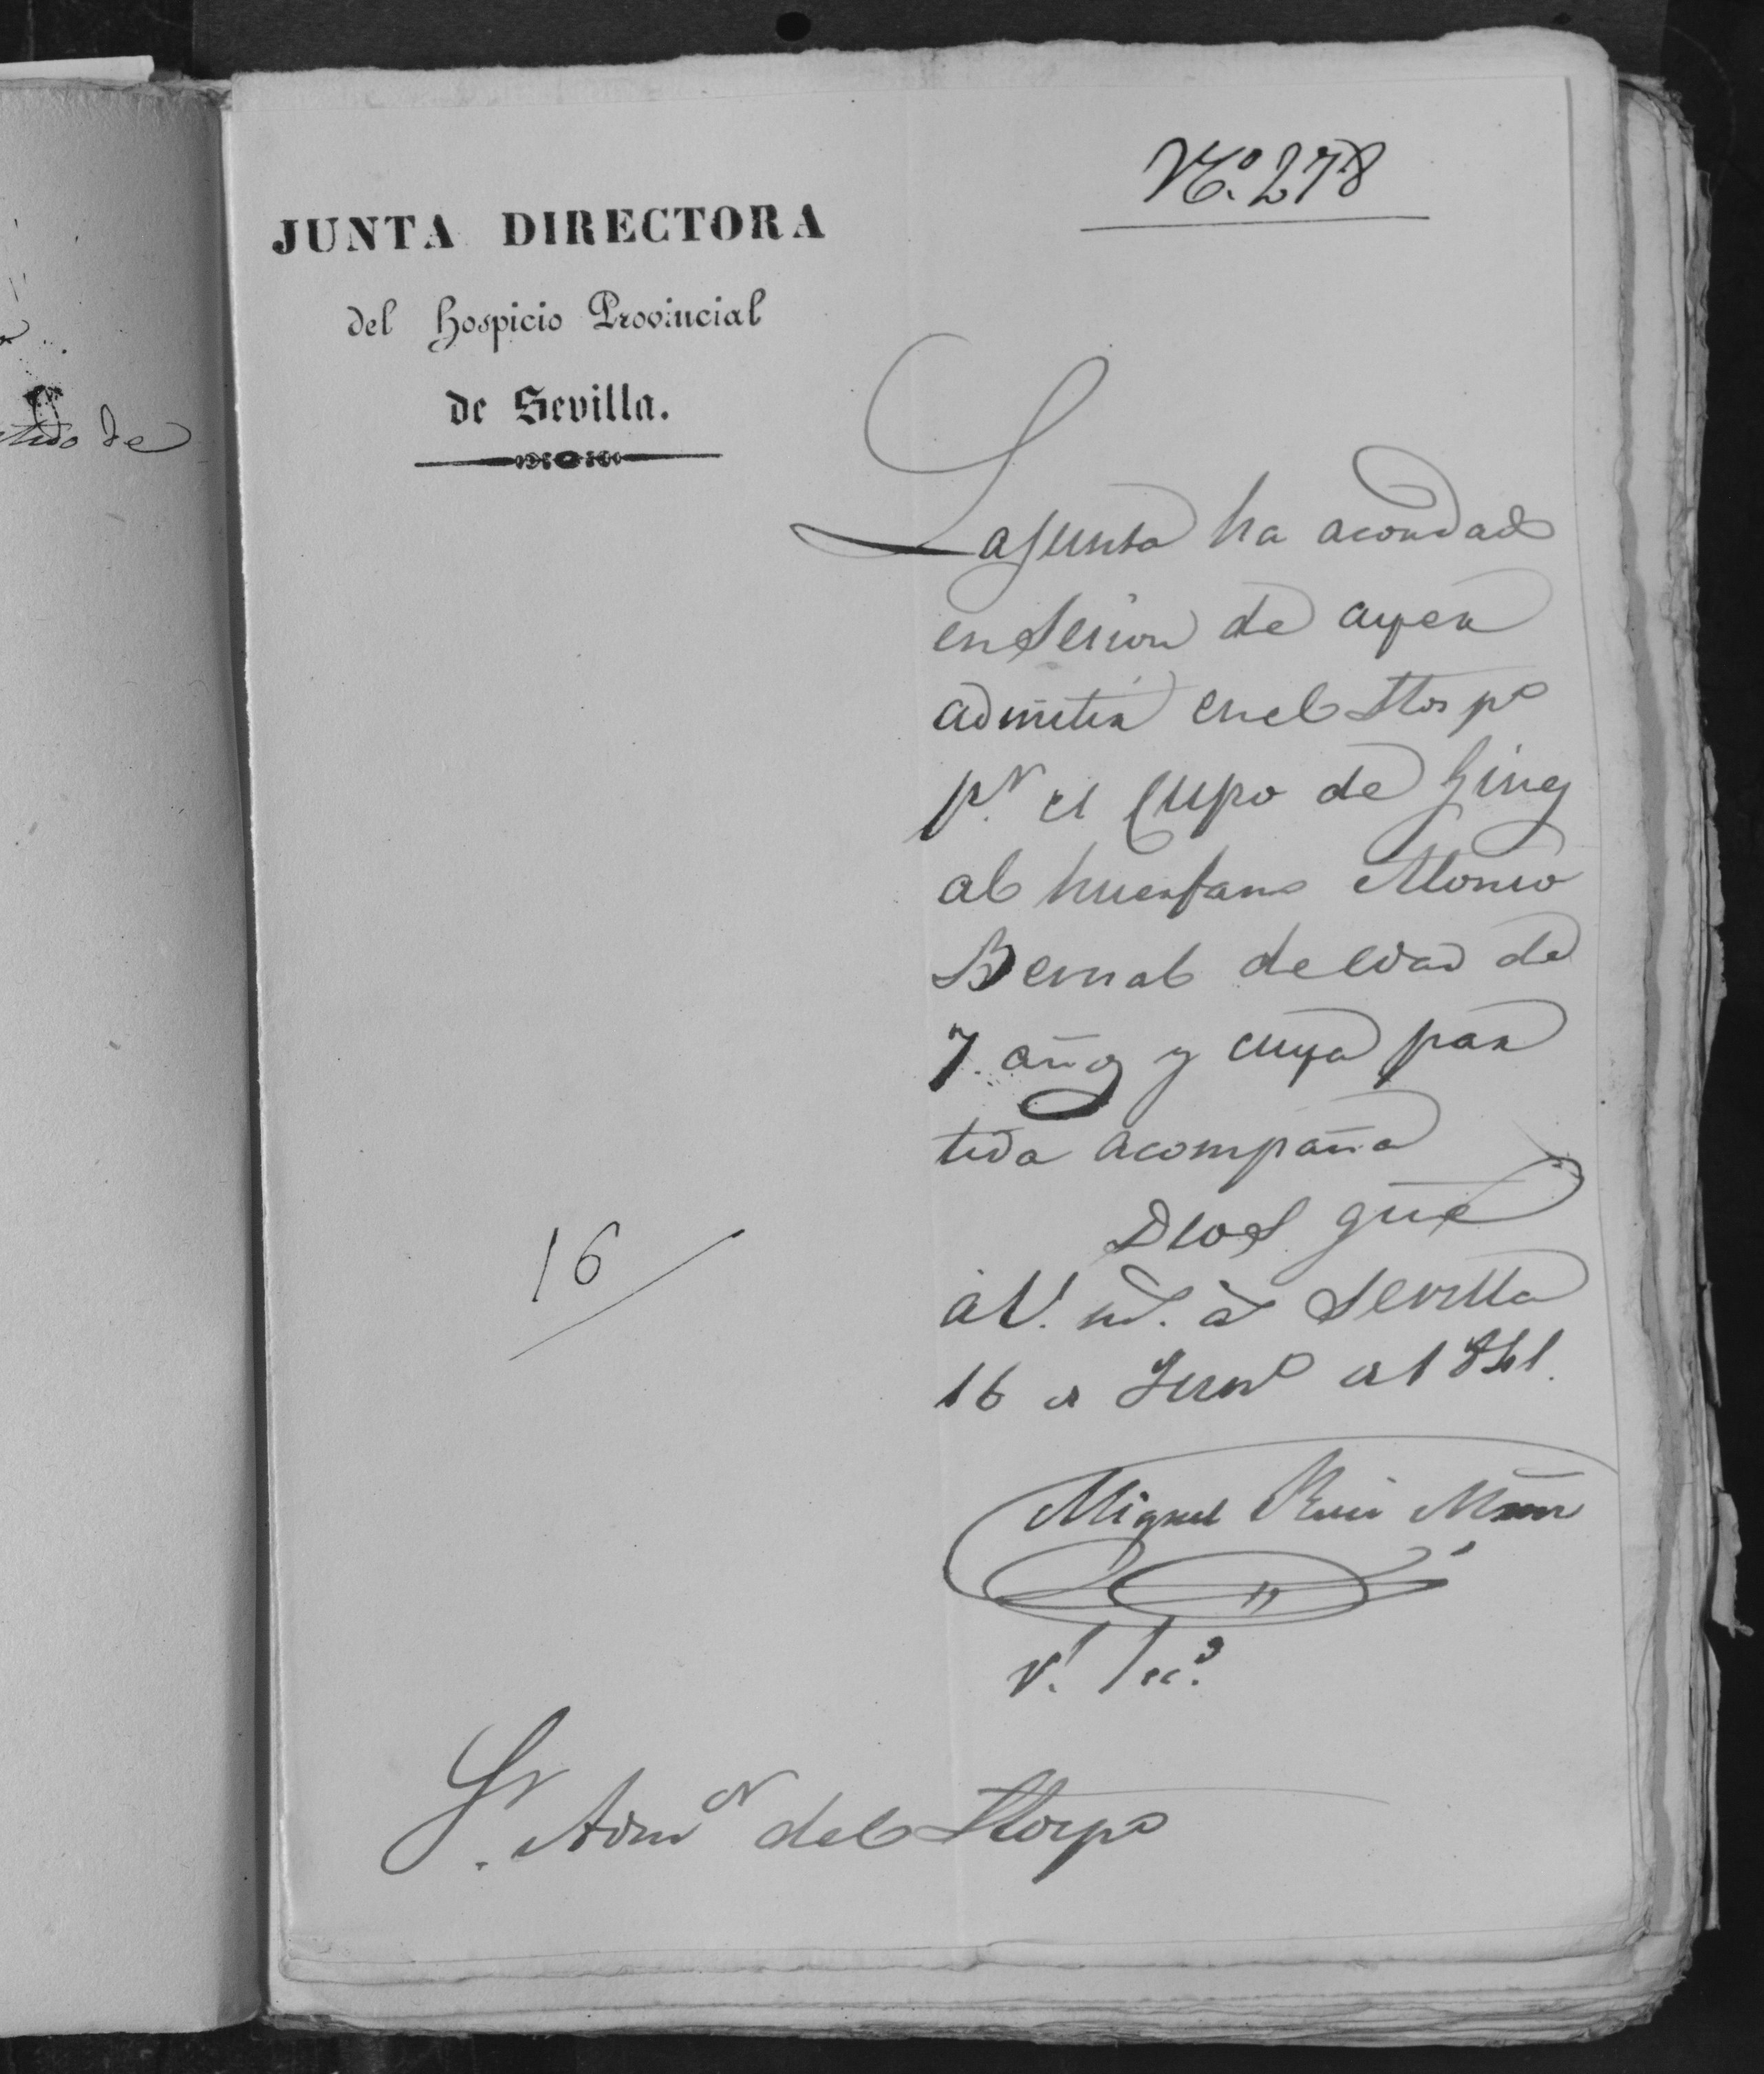 tido de
Nº. 278
JUNTA DIRECTORA
del Hospicio Provincial
de Sevilla.
La Junta ha acordado
en Sesion de ayer
admitir en el Hospº
pr. el Cupo de Gines
al huerfano Alonso
Bernal de edad de
7. años y cuya par
tida acompaña
Dios gue
á V. ms. as Sevilla
16 de Junº de 1841.
16
Miguel Ruiz Mnrz
V. Secº.
Sr. Admor del Hospº